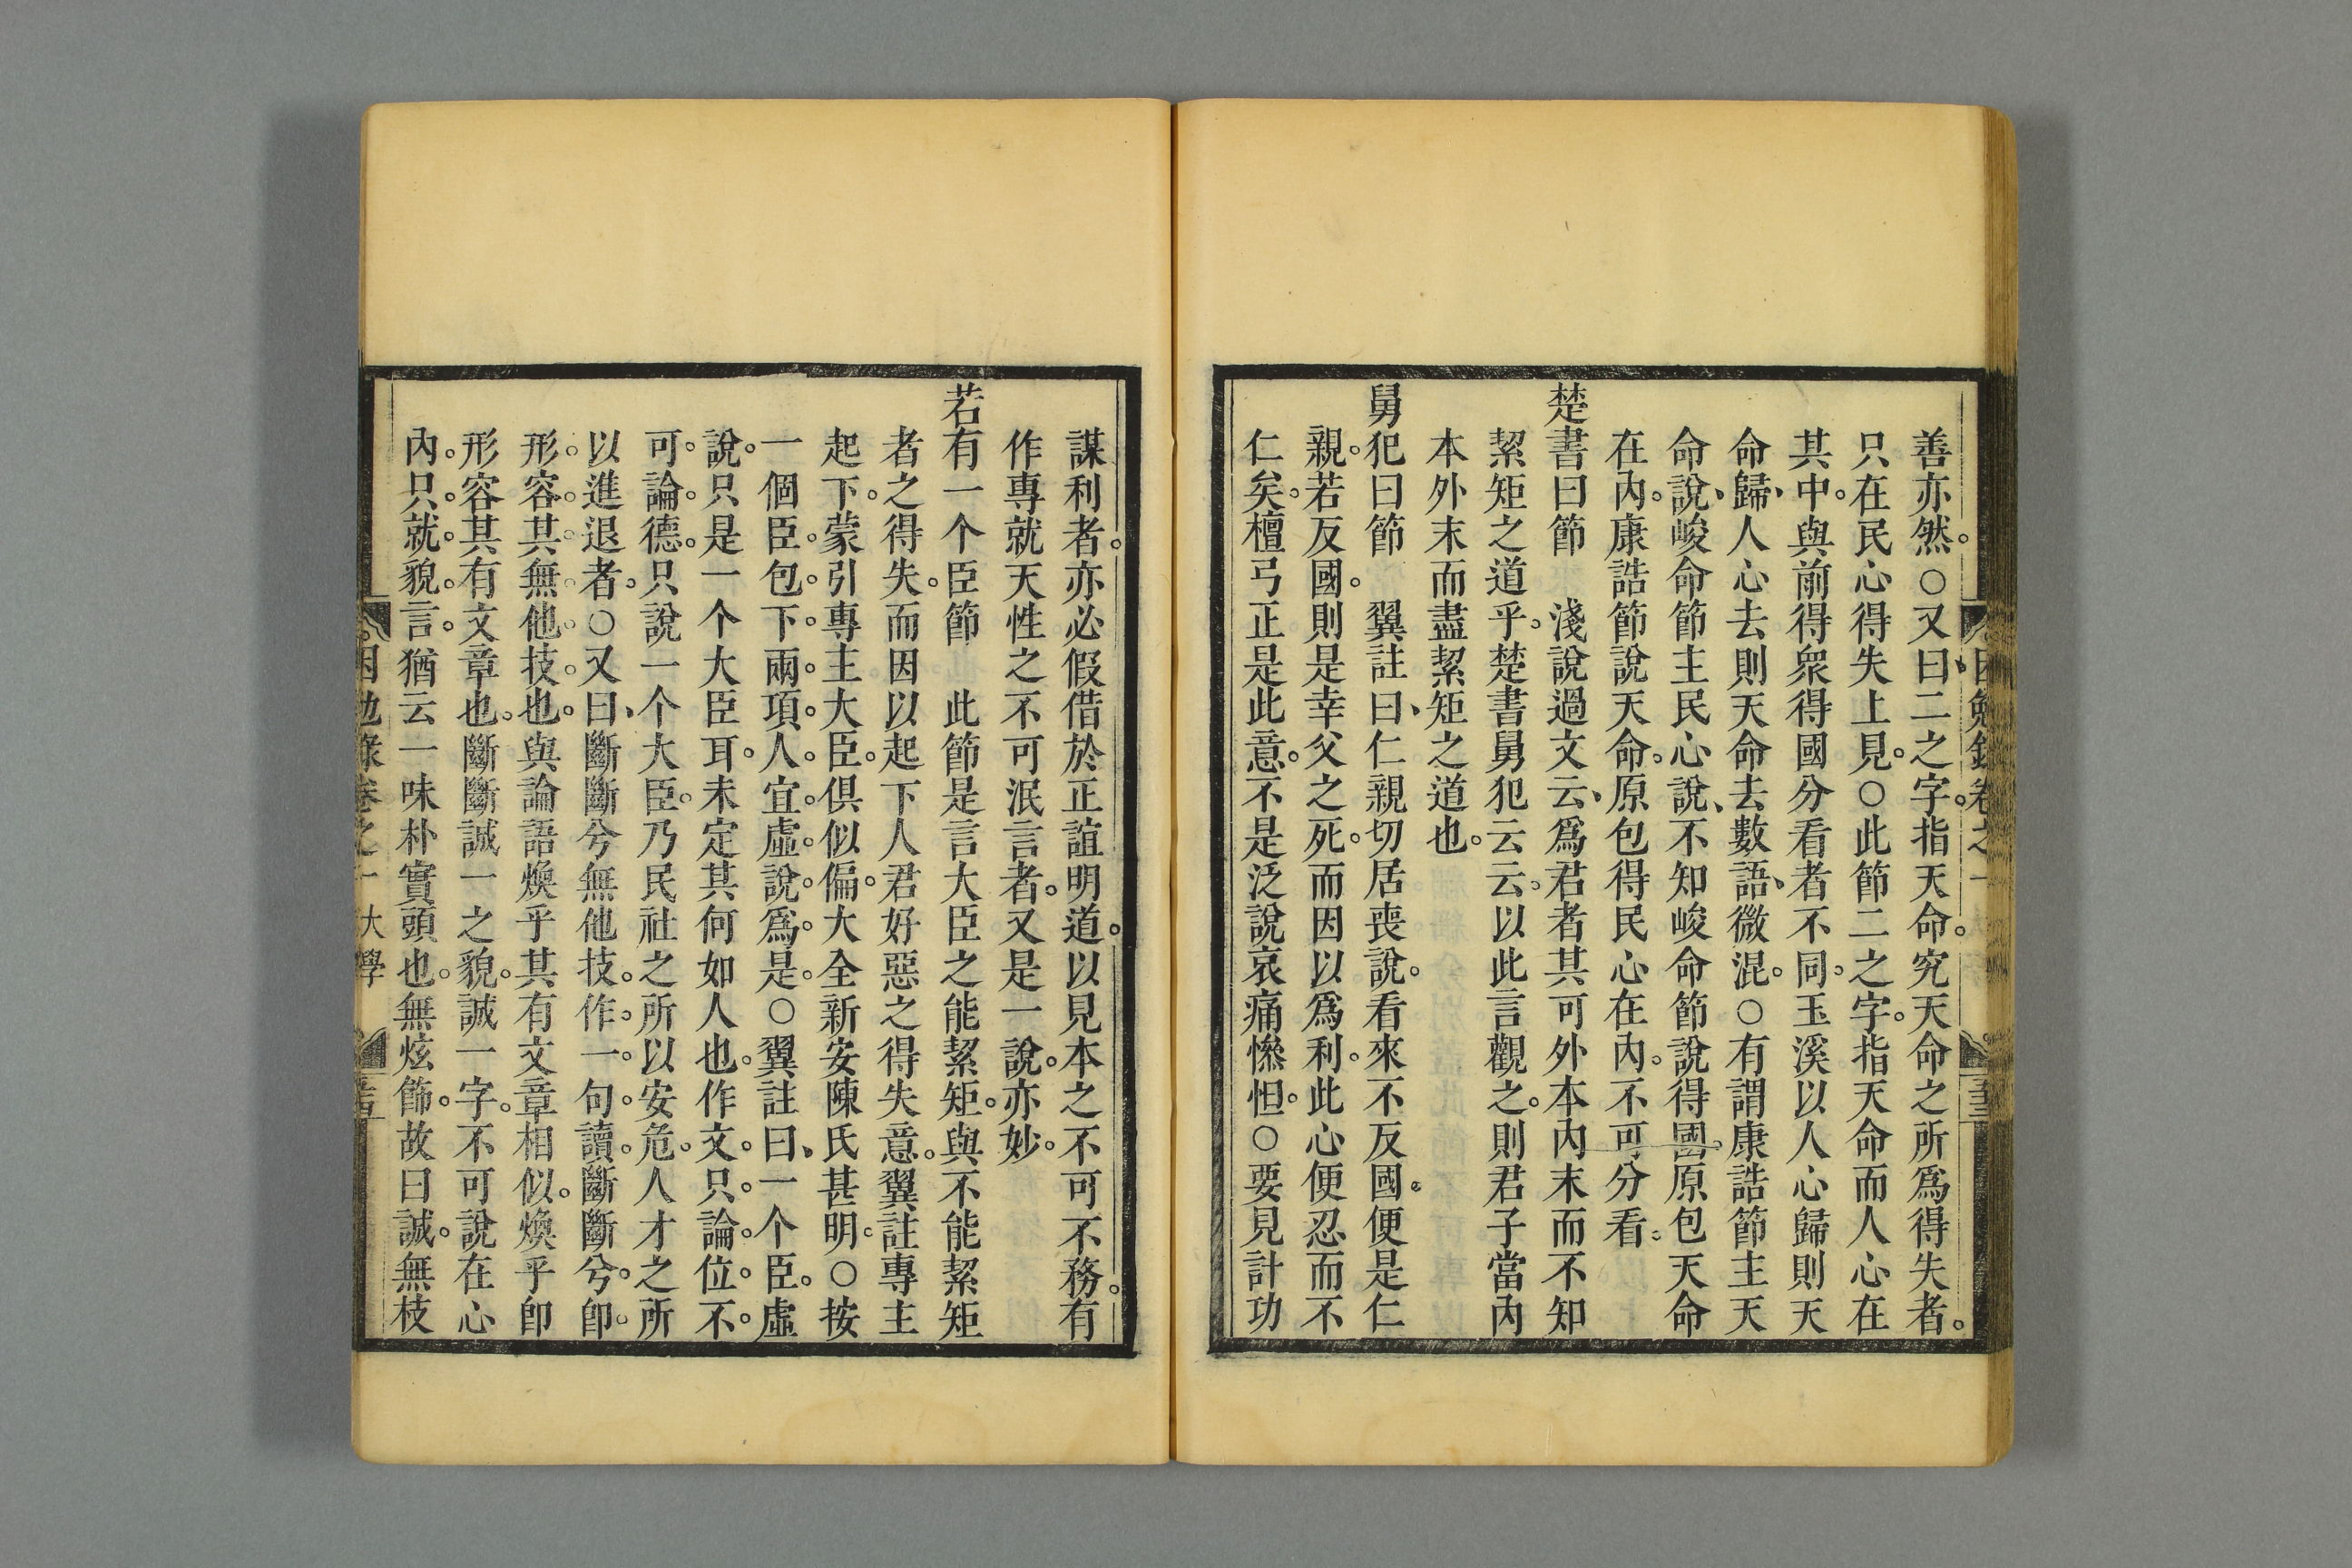 善亦然。○又曰二之字。指天命。究天命之所爲得失者。
只在民心得失上見。○此節二之字。指天命而人心在
其中。與前得衆得國分看者不同。玉溪以人心歸則天
命歸、人心去則天命去數語、微混。○有謂康誥節主天
命說、峻命節主民心說、不知峻命節說得國原包天命
在內。康誥節說天命。原包得民心在內。不可分看。
楚書曰節　淺說過文云、爲君者其可外本內末而不知
絜矩之道乎。楚書舅犯云云。以此言觀之。則君子當內
本外末而盡絜矩之道也。
舅犯曰節　翼註曰、仁親切居喪說。看來不反國。便是仁
親。若反國。則是幸父之死。而因以爲利。此心便忍而不
仁矣。檀弓正是此意。不是泛說哀痛慘怛。○要見計功
謀利者。亦必假借於正誼明道。以見本之不可不務。有
作專就天性之不可泯言者。又是一說。亦妙。
若有一个臣節　此節是言大臣之能絜矩。與不能絜矩
者之得失。而因以起下人君好惡之得失意。翼註專主
起下。蒙引專主大臣。俱似偏。大全新安陳氏甚明。○按
一個臣。包。下。兩。項。人。宜。虛。說。爲。是。○翼註曰、一个臣。虛
說。只是一个大臣耳。未定其何如人也。作文。只。論。位。不。
可。論。德。只說一个大臣。乃民社之所以安危。人才之所
以進退者。○又曰、斷斷兮無他技。作。一。句。讀。斷斷兮。卽。
形。容。其。無。他。技。也。與論語煥乎其有文章相似。煥乎卽
形容其有文章也。斷斷誠一之貌。誠一字。不可說在心
內。只。就。貌。言。猶云一味朴實頭也。無炫飾。故曰誠。無枝
困勉錄卷之一
困勉錄卷之一 大學